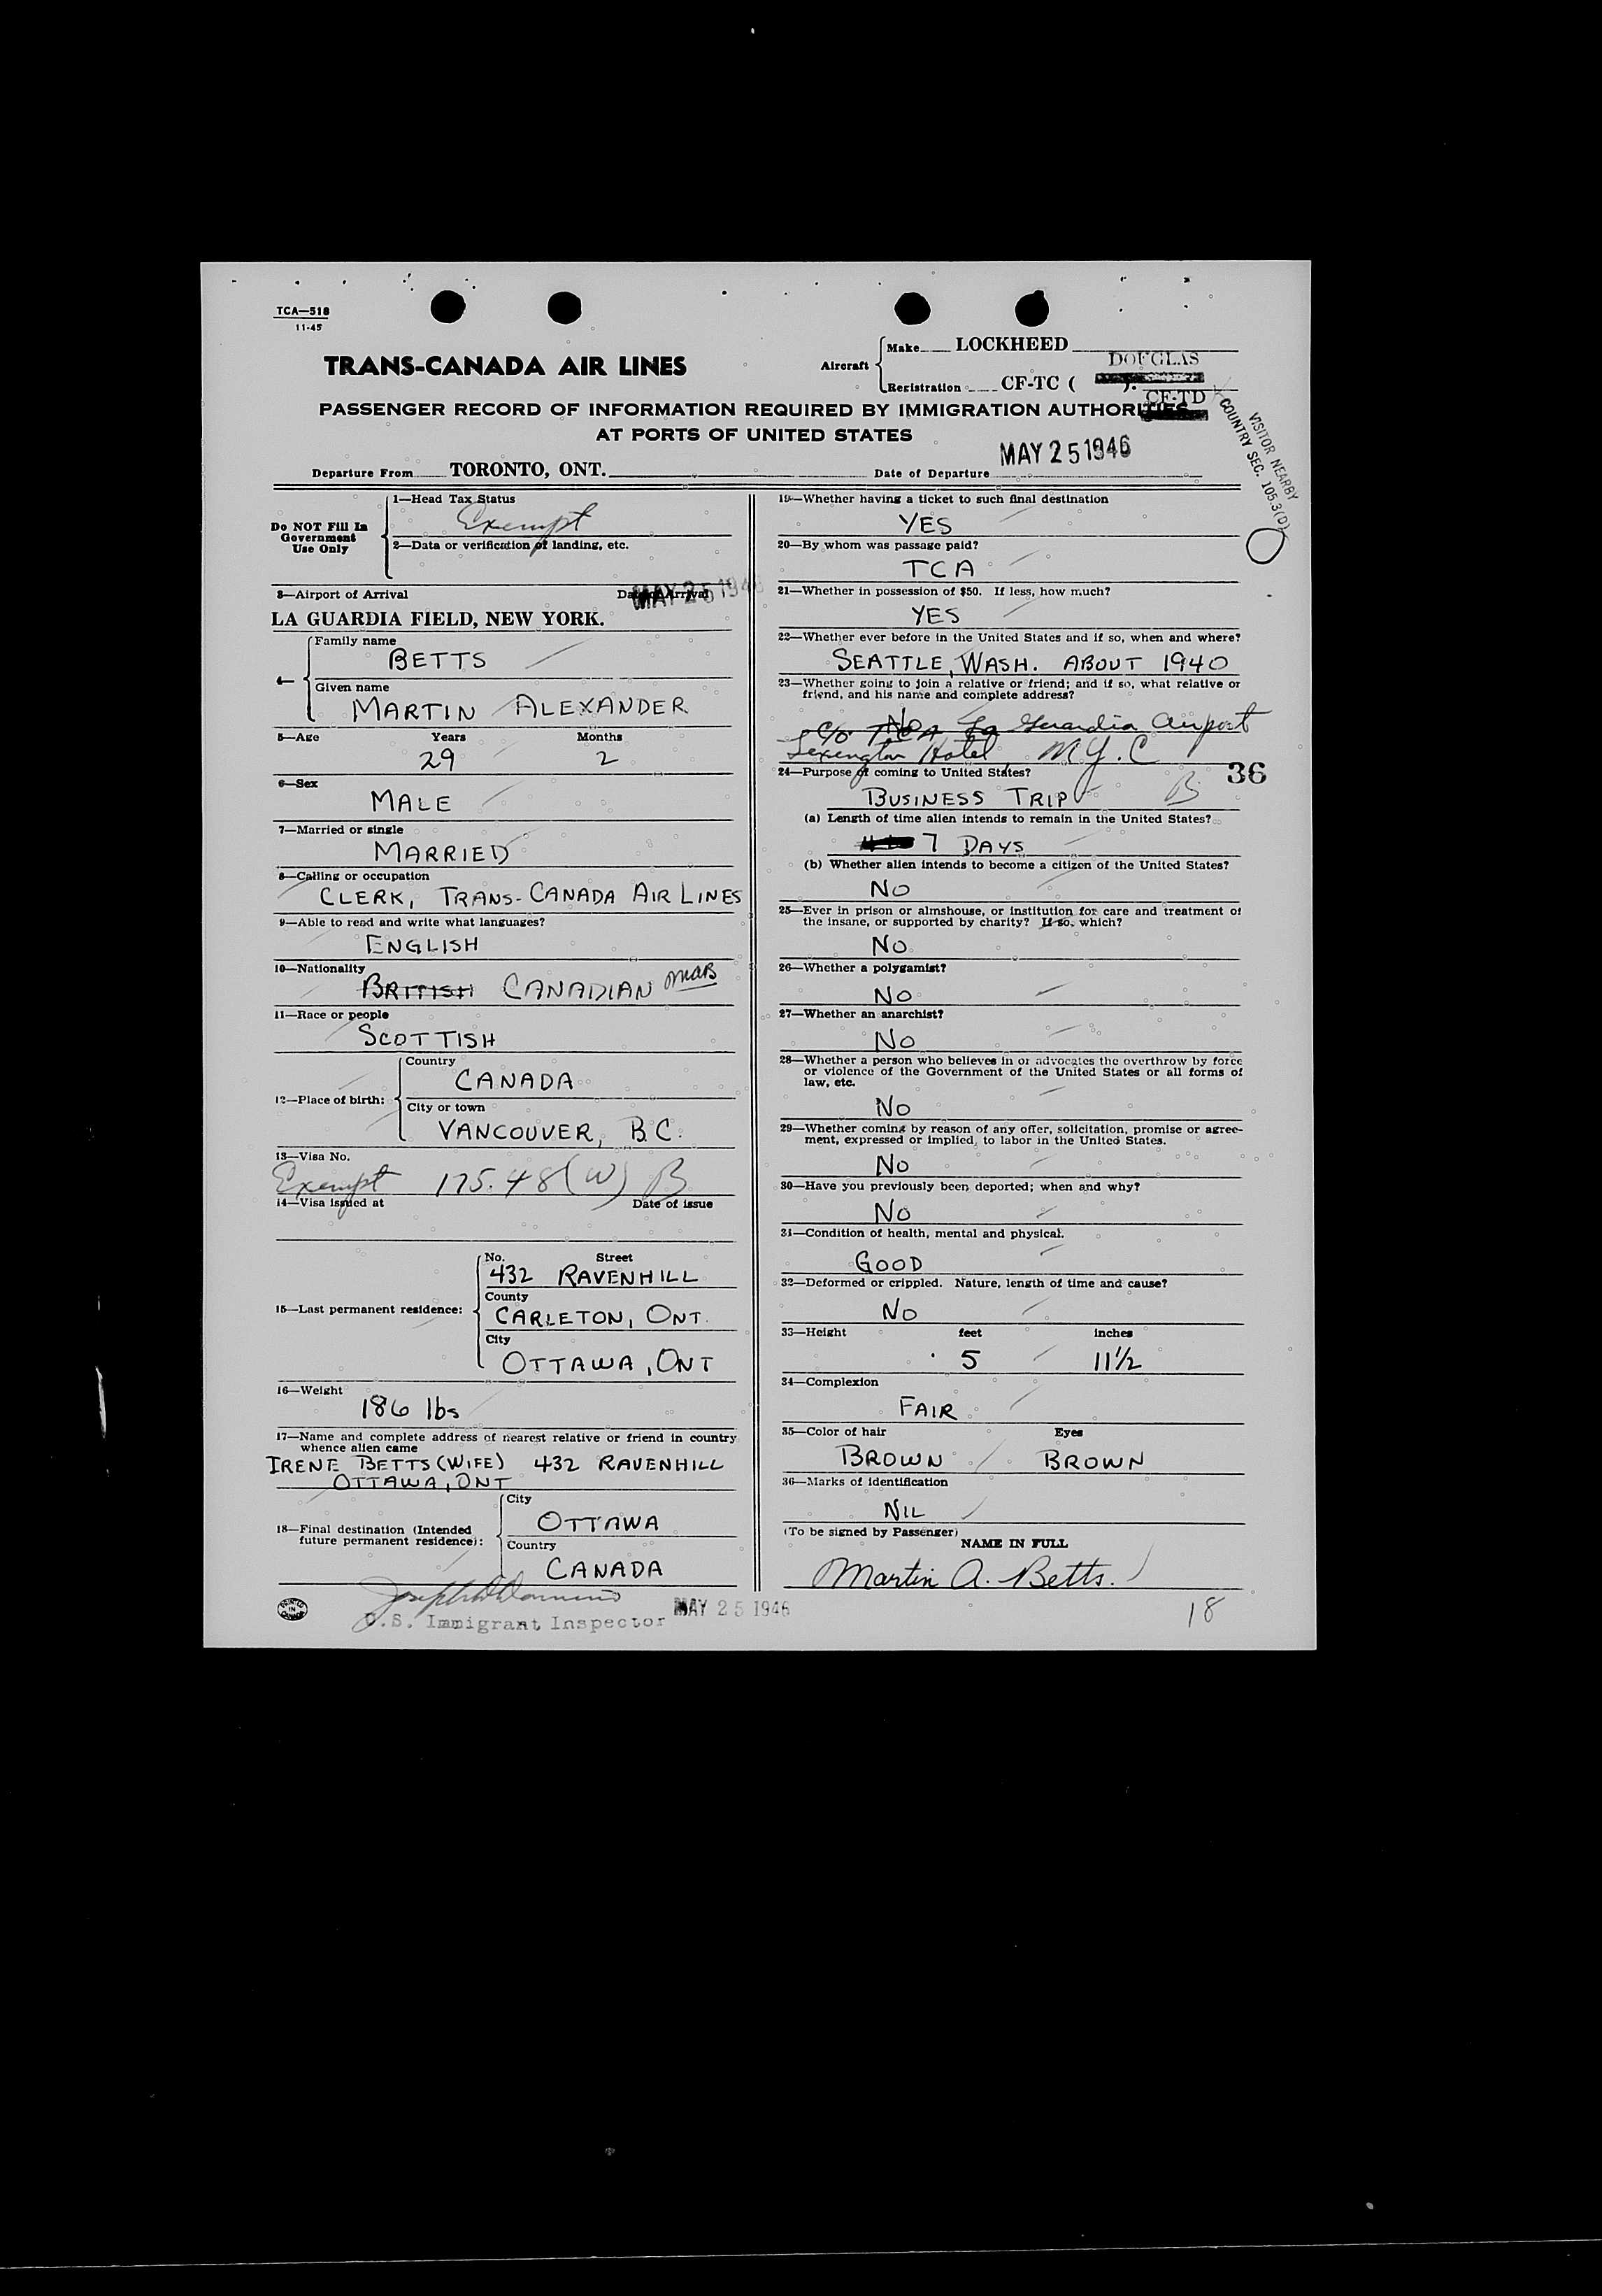 TCA—518
11-45
TRANS-CANADA AIR LINES
Aircraft
Make LOCKHEED
DOUGLAS
Registration CF-TC ( ).
CF-TD
PASSENGER RECORD OF INFORMATION REQUIRED BY IMMIGRATION AUTHORITIES
AT PORTS OF UNITED STATES
VISITOR NEARBY
COUNTRY SEC. 105.3(D)
Departure From TORONTO, ONT.
Date of Departure MAY 25 1946
Do NOT Fill In
Government
Use Only
1—Head Tax Status
Exempt
2—Data or verification of landing, etc.
3—Airport of Arrival Date of Arrival
MAY 25 1946
LA GUARDIA FIELD, NEW YORK.
4—
Family name
BETTS
Given name
MARTIN ALEXANDER
5—Age Years Months
29 2
6—Sex
MALE
7—Married or single
MARRIED
8—Calling or occupation
CLERK, TRANS-CANADA AIR LINES
9—Able to read and write what languages?
ENGLISH
10—Nationality
BRITISH CANADIAN MAB
11—Race or people
SCOTTISH
12—Place of birth:
Country
CANADA
City or town
VANCOUVER, B.C.
13—Visa No.
Exempt 175.48 (W) B
14—Visa issued at Date of issue
15—Last permanent residence:
No. Street
432 RAVENHILL
County
CARLETON, ONT.
City
OTTAWA, ONT
16—Weight
186 lbs
17—Name and complete address of nearest relative or friend in country
whence alien came
IRENE BETTS (WIFE) 432 RAVENHILL
OTTAWA, ONT
18—Final destination (Intended
future permanent residence):
City
OTTAWA
Country
CANADA
U.S. Immigrant Inspector
MAY 25 1946
PRINTED
IN
CANADA
19—Whether having a ticket to such final destination
YES
20—By whom was passage paid?
TCA
21—Whether in possession of $50. If less, how much?
YES
22—Whether ever before in the United States and if so, when and where?
SEATTLE, WASH. ABOUT 1940
23—Whether going to join a relative or friend; and if so, what relative or
friend, and his name and complete address?
No
c/o TCA La Guardia Airport
Lexington Hotel N.Y.C
36
24—Purpose of coming to United States?
BUSINESS TRIP B
(a) Length of time alien intends to remain in the United States?
7 DAYS
(b) Whether alien intends to become a citizen of the United States?
NO
25—Ever in prison or almshouse, or institution for care and treatment of
the insane, or supported by charity? If so, which?
NO
26—Whether a polygamist?
NO
27—Whether an anarchist?
NO
28—Whether a person who believes in or advocates the overthrow by force
or violence of the Government of the United States or all forms of
law, etc.
NO
29—Whether coming by reason of any offer, solicitation, promise or agree-
ment, expressed or implied, to labor in the United States.
NO
30—Have you previously been deported; when and why?
NO
31—Condition of health, mental and physical.
GOOD
32—Deformed or crippled. Nature, length of time and cause?
NO
33—Height feet inches
5 11½
34—Complexion
FAIR
35—Color of hair Eyes
BROWN BROWN
36—Marks of identification
NIL
(To be signed by Passenger)
NAME IN FULL
Martin A. Betts.
18